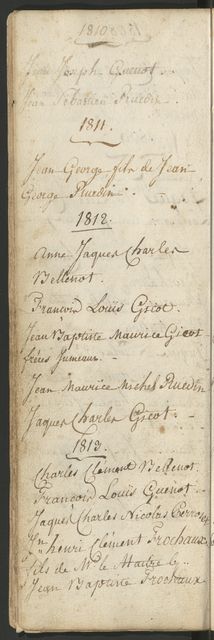 1810
Jean Joseph Guenot.
Jean Sebastien Ruedin.
1811.
Jean George fils de Jean
George Ruedin.
1812.
Anne Jaques Charles
Bellenot.
Francois Louïs Gicot.
Jean Baptiste Maurice Gicot
fréres Jumeaux.
Jean Maurice Michel Ruedin
Jaques Charles Gicot.
1813.
Charles Clement Bellenot.
Francois Louis Guenot.
Jaques Charles Nicolas Perroset
Jn henri Clement Frochaux
fils de Mr le Maitre b.
Jean Baptiste Frochaux